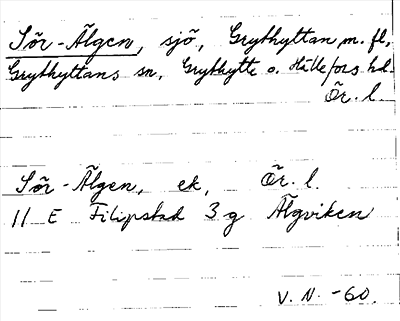 Sör-Älgen, sjö, Grythyttan m. fl.
Grythyttans sn, Grythytte o. Hällefors hd.
Ör. l.
Sör-Älgen, ek, Ör. l.
11 E Filipstad 3 g Älgviken
V. N. -60.